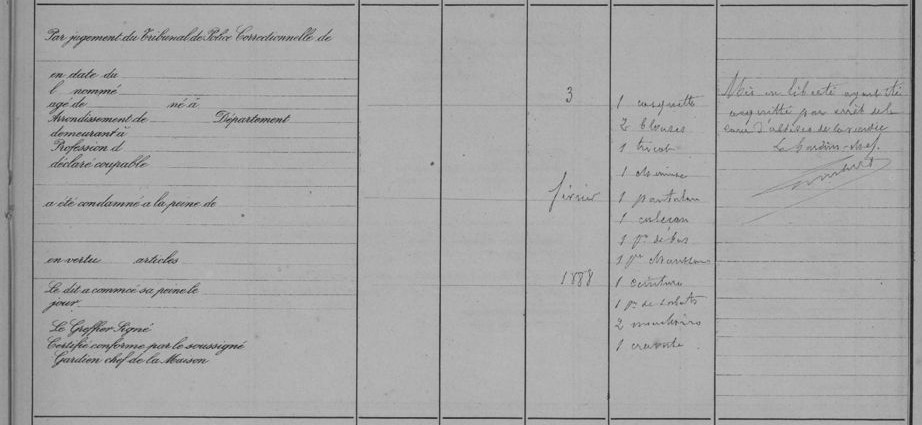 Par jugement du Tribunal de Police Correctionnelle de
en date du
l nommé
agé de né à
Arrondissement de Département
demeurant à
Profession d
déclaré coupable
a été condamné a la peine de
en vertu articles
Le dit a commcé sa peine le
jour.
Le Greffier Signé
Certifié conforme par le soussigné
Gardien chef de la Maison
3
février
1888
1 casquette
2 blouses
1 tricot
1 chemise
1 pantalon
1 caleçon
1 pre de bas
1 pre chaussons
1 ceinture
1 pre de sabots
2 mouchoirs
1 cravate
Mis en liberté ayant été
acquitté par arrêt de la
cour d'assises de la Vendée
Le Gardien-chef.